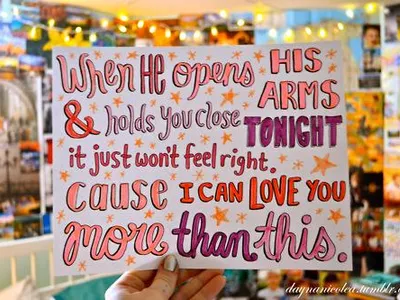 When HE opens HIS
ARMS
& holds you close TONIGHT
it just won't feel right.
CAUSE I CAN LOVE YOU
more than this.
daynanicolea.tumblr.c